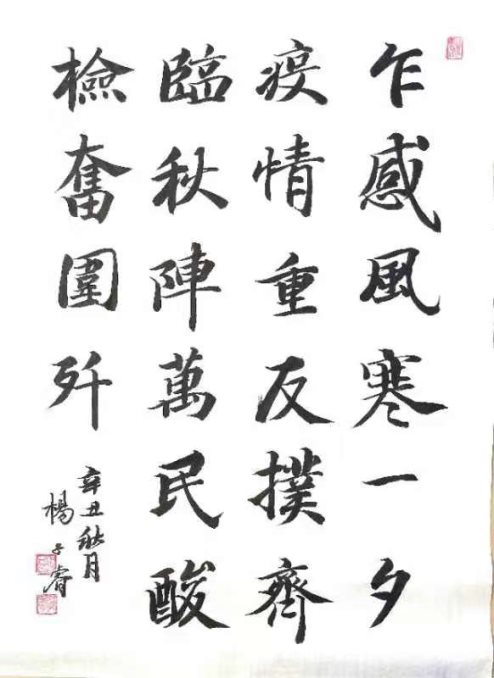 乍感風寒一夕
疫情重反撲齊
臨秋陣萬民酸
檢奮圍歼
辛丑秋月
楊子睿